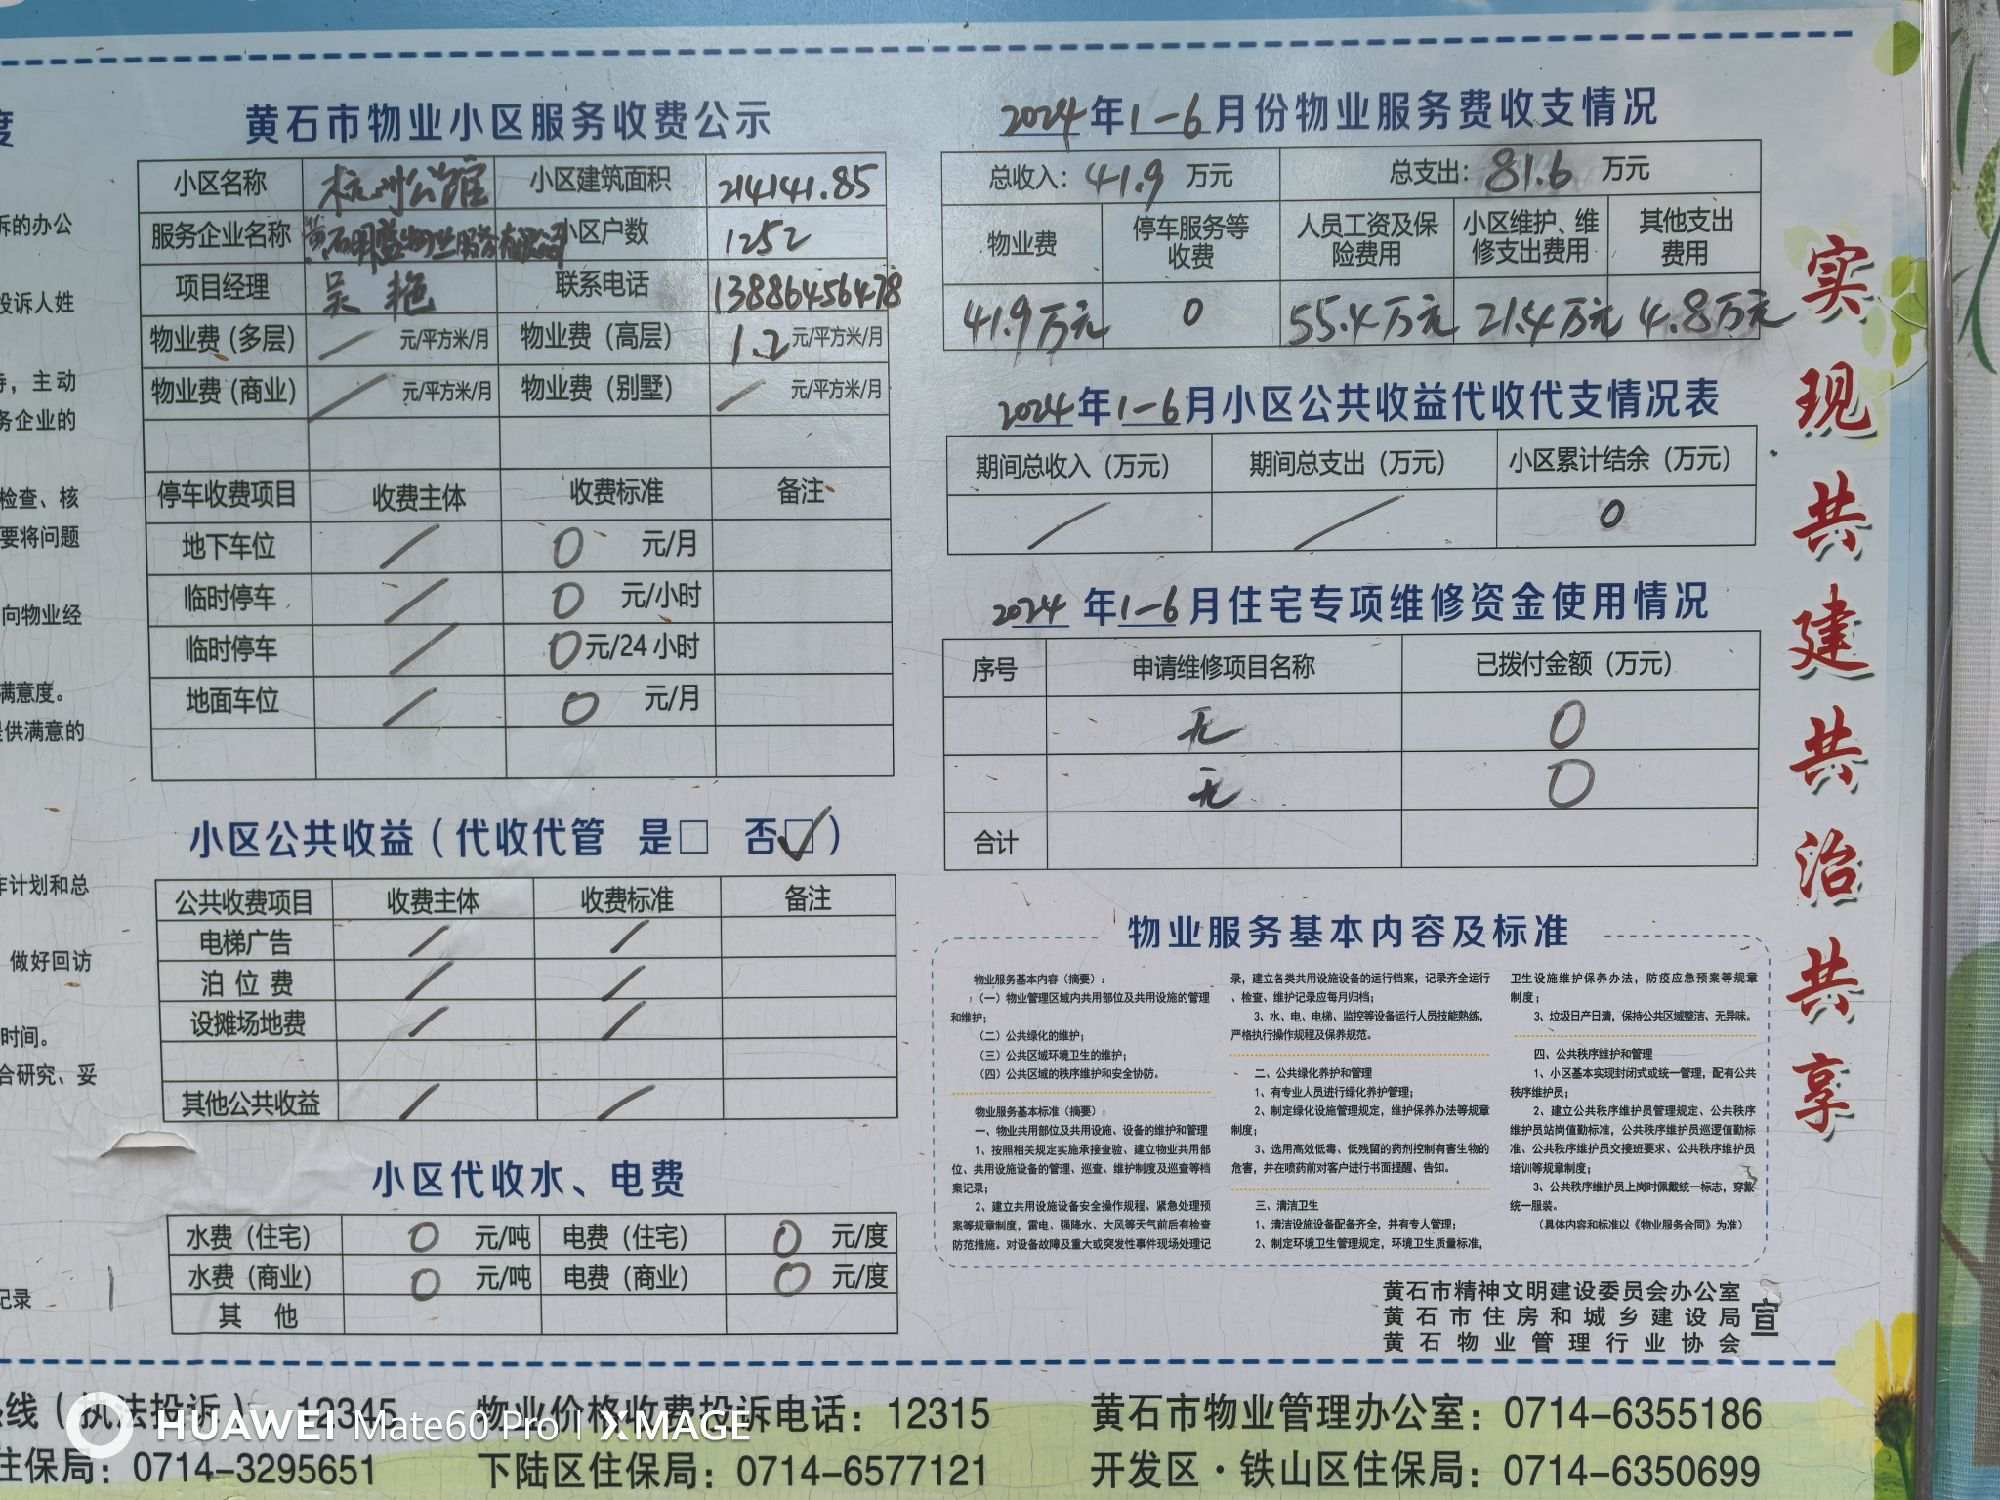 度
诉的办公
投诉人姓
待，主动
务企业的
检查、核
要将问题
向物业经
满意度。
提供满意的
作计划和总
做好回访
时间。
合研究、妥
记录
黄石市物业小区服务收费公示
小区名称 杭州公馆 小区建筑面积 214141.85
服务企业名称 黄石明盛物业服务有限公司 小区户数 1252
项目经理 吴艳 联系电话 13886456478
物业费（多层） / 元/平方米/月 物业费（高层） 1.2 元/平方米/月
物业费（商业） / 元/平方米/月 物业费（别墅） / 元/平方米/月
停车收费项目 收费主体 收费标准 备注
地下车位 / 0 元/月
临时停车 / 0 元/小时
临时停车 / 0 元/24小时
地面车位 / 0 元/月
小区公共收益（代收代管 是□ 否☑）
公共收费项目 收费主体 收费标准 备注
电梯广告 / /
泊位费 / /
设摊场地费 / /
其他公共收益 / /
小区代收水、电费
水费（住宅） 0 元/吨 电费（住宅） 0 元/度
水费（商业） 0 元/吨 电费（商业） 0 元/度
其他
2024年1-6月份物业服务费收支情况
总收入：41.9 万元 总支出：81.6 万元
物业费 停车服务等收费 人员工资及保险费用 小区维护、维修支出费用 其他支出费用
41.9万元 0 55.4万元 21.4万元 4.8万元
2024年1-6月小区公共收益代收代支情况表
期间总收入（万元） 期间总支出（万元） 小区累计结余（万元）
/ / 0
2024年1-6月住宅专项维修资金使用情况
序号 申请维修项目名称 已拨付金额（万元）
无 0
无 0
合计
物业服务基本内容及标准
物业服务基本内容（摘要）：
（一）物业管理区域内共用部位及共用设施的管理
和维护；
（二）公共绿化的维护；
（三）公共区域环境卫生的维护；
（四）公共区域的秩序维护和安全协防。
物业服务基本标准（摘要）：
一、物业共用部位及共用设施、设备的维护和管理
1、按照相关规定实施承接查验、建立物业共用部
位、共用设施设备的管理、巡查、维护制度及巡查等档
案记录；
2、建立共用设施设备安全操作规程、紧急处理预
案等规章制度，雷电、强降水、大风等天气前后有检查
防范措施。对设备故障及重大或突发性事件现场处理记
录，建立各类共用设施设备的运行档案，记录齐全运行
、检查、维护记录应每月归档；
3、水、电、电梯、监控等设备运行人员技能熟练，
严格执行操作规程及保养规范。
二、公共绿化养护和管理
1、有专业人员进行绿化养护管理；
2、制定绿化设施管理规定，维护保养办法等规章
制度；
3、选用高效低毒、低残留的药剂控制有害生物的
危害，并在喷药前对客户进行书面提醒、告知。
三、清洁卫生
1、清洁设施设备配备齐全，并有专人管理；
2、制定环境卫生管理规定，环境卫生质量标准，
卫生设施维护保养办法，防疫应急预案等规章
制度；
3、垃圾日产日清，保持公共区域整洁、无异味。
四、公共秩序维护和管理
1、小区基本实现封闭式或统一管理，配有公共
秩序维护员；
2、建立公共秩序维护员管理规定、公共秩序
维护员站岗值勤标准，公共秩序维护员巡逻值勤标
准、公共秩序维护员交接班要求、公共秩序维护员
培训等规章制度；
3、公共秩序维护员上岗时佩戴统一标志，穿戴
统一服装。
（具体内容和标准以《物业服务合同》为准）
黄石市精神文明建设委员会办公室
黄石市住房和城乡建设局
黄石物业管理行业协会
宣
实现共建共治共享
线（执法投诉）：12345 物业价格收费投诉电话：12315 黄石市物业管理办公室：0714-6355186
住保局：0714-3295651 下陆区住保局：0714-6577121 开发区·铁山区住保局：0714-6350699
HUAWEI Mate60 Pro | XMAGE